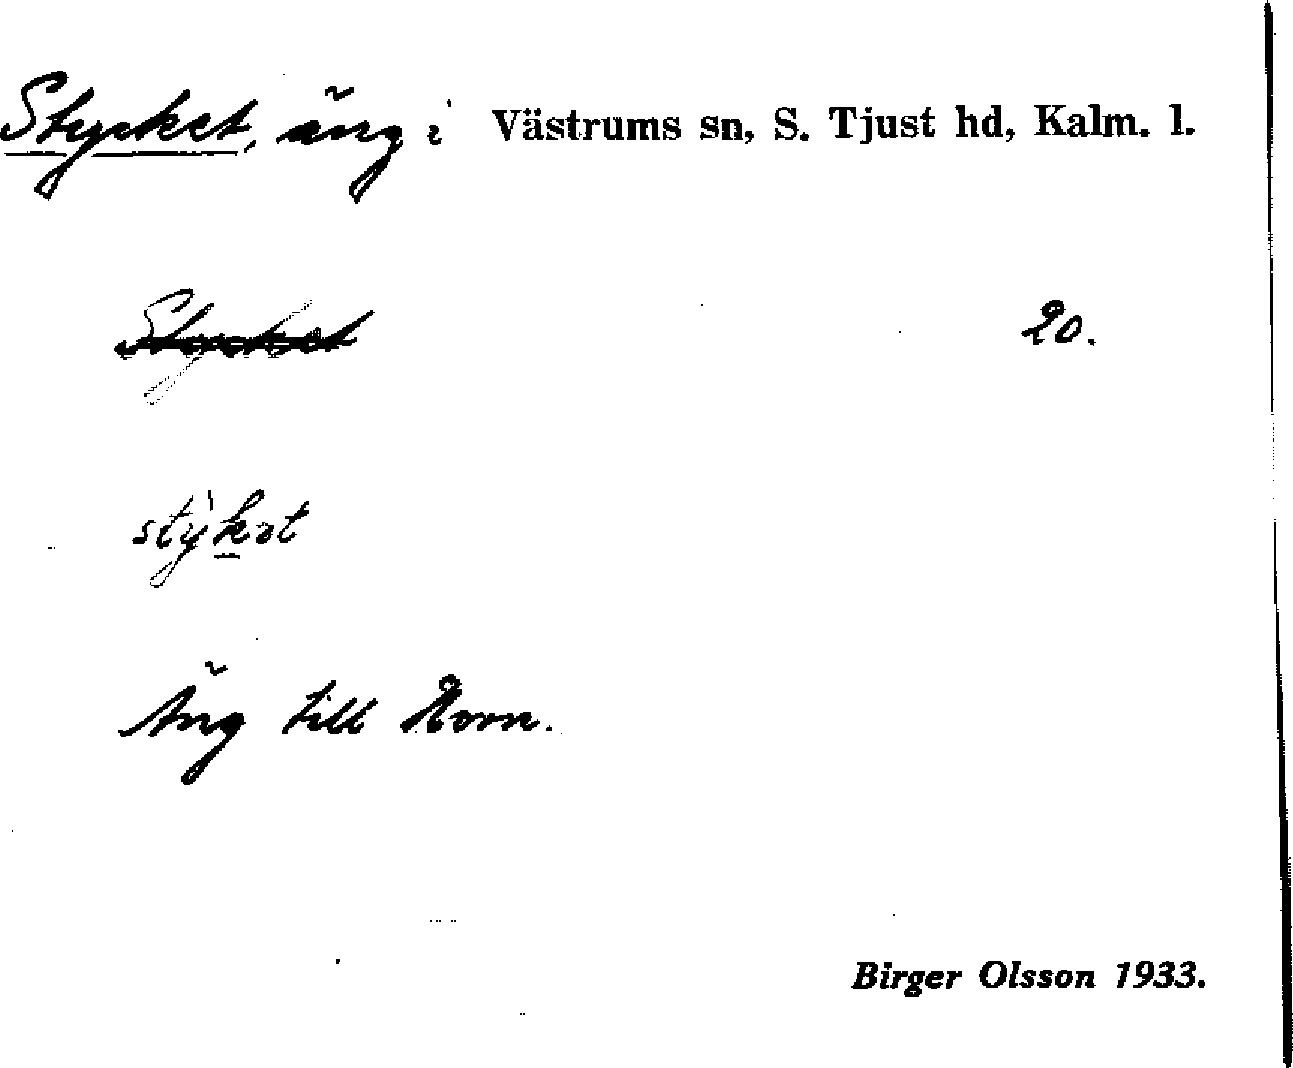 Stycket, äng i Västrums sn, S. Tjust hd, Kalm. l.
Stycket 20.
stýkət
Äng till Horn.
Birger Olsson 1933.